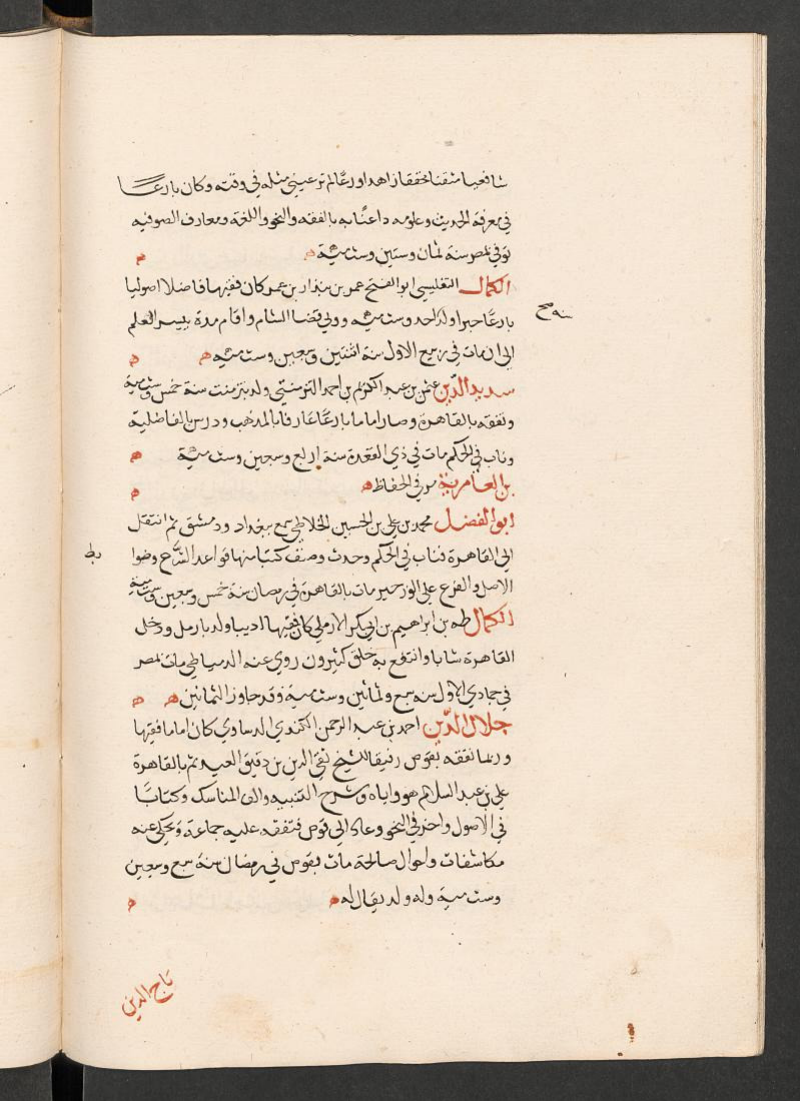 شافعيا متقنا محققا زاهدا ورعا لم تر عيني مثله في وقته وكان بارعا
في معرفة الحديث وعلومه داعنا به بالفقه والنحو واللغة ومعارف الصوفيه
توفي بمصر سنة ثمان وستين وستمية
الكمال التفليسي ابو الفتح عمر بن بندار بن عمر كان فقيها فاضلا اصوليا
بارعا خيرا ولد احد وستمية وولي قضا الشام واقام مدة ييسر العلم
الى ان مات في ربيع الاول سنة اثنتين وسبعين وستمية
سديد الدين عثمن بن عبد الكريم بن احمد التزمنتي ولد بتزمنت سنة خمس وستمية
وتفقه بالقاهرة وصار اماما بارعا عارفا بالمذهب ودرس بالفاضلية
وناب في الحكم مات في ذي القعدة سنة اربع وسبعين وستمية
بن العامرية مر في الحفاظ
ابو الفضل محمد بن علي بن الحسين الخلاطي سمع ببغداد ودمشق ثم انتقل
الى القاهرة فناب في الحكم وحدث وصنف كتبا منها قواعد الشرع وضوا
الاصل والفرع على الوجيز مات بالقاهرة في رمضان سنة خمس وسبعين وستمية
الكمال طه بن ابراهيم بن ابي بكر الارملي كان فقيها اديبا ولد باربل ودخل
القاهرة شابا وانتفع به خلق كثيرون روي عنه الدمياطي مات بمصر
في جمادي الاول سنه سبع وثمانين وستمية وقد جاوز الثمانين
جلال الدين احمد بن عبد الرحمن الكندي الدساوي كان اماما فقيها
ورعا تفقه بقوص رفيقا للشيخ تقي الدين بن دقيق العيد ثم بالقاهرة
علي بن عبد السلام هو واياه وشرح التنبيه والف المناسك وكتابا
في الاصول واخر في النحو وعاد الى قوص فتفقه عليه جماعة ويحكى عنه
مكاشفات واحوال صالحة مات بقوص في رمضان سنة سبع وسبعين
وستمية وله ولد يقال له
تاج الدين